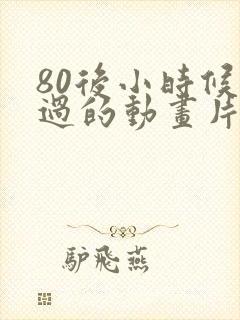 80後小時候
過的動畫片
驢飛燕